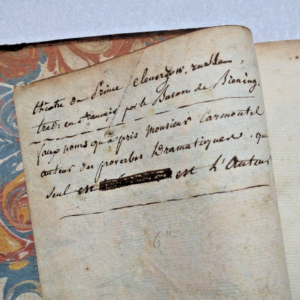 théatre du Prince clenerzow, russe,
trad: en françois par le Baron de Blening
faux noms qu'a pris monsieur Carmontel
auteur des proverbes Dramatiques. qui
seul est est l'auteur